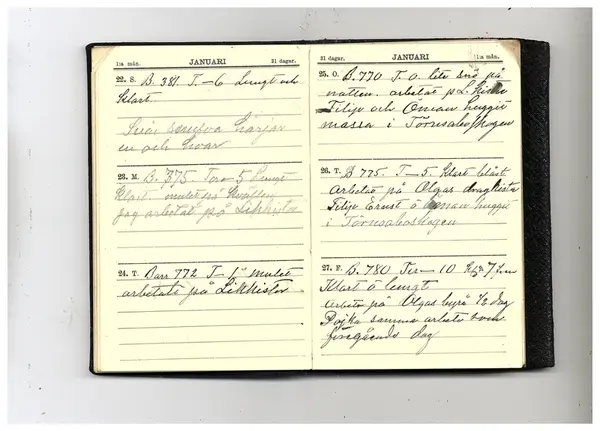 1:a mån. JANUARI 31 dagar.
22. S. B. 381. T. - 6 Lungt och
klart.
Svår snuva härjar
en och hvar
23. M. B. 375. Ter - 5 Lungt
klart. mulet på kvällen
jag arbetat på Likkistor
24. T. Barr 772 T - 1° mulet
arbetats på Likkistor
31 dagar. JANUARI 1:a mån.
25. O. B. 770 T 0. lite snö på
natten. arbetat på L. kistor
Filip och Öman huggit
massa i Törnsaboskogen
26. T. B 775. T - 5. Klart blåst
arbetat på Olgas dragkista
Filip Ernst o Öman huggit
i Törnsaboskogen
27. F. B. 780 Ter - 10 7 fm
Klart o lungt
arbetat på Olgas byrå 1/2 dag
Pojka samma arbete som
föregående dag